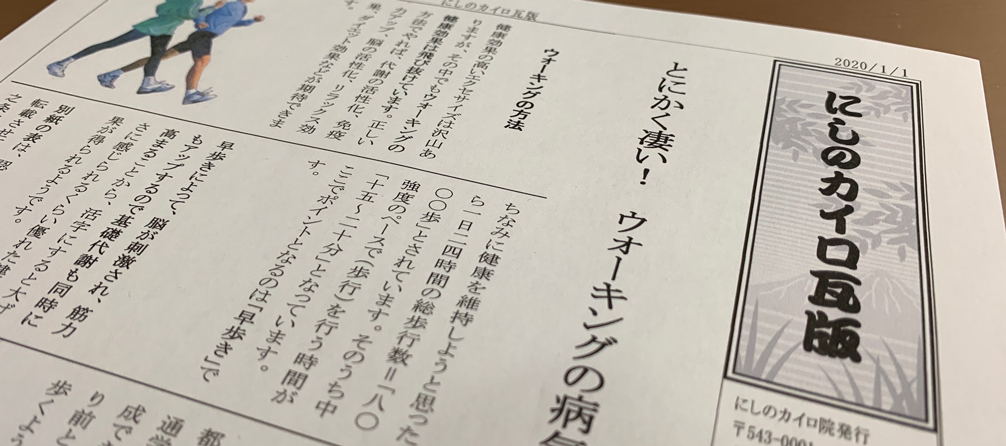 にしのカイロ瓦版
2020/1/1
にしのカイロ瓦版
にしのカイロ院発行
〒543-0001
とにかく凄い! ウォーキングの病気
ウォーキングの方法
健康効果の高いエクササイズは沢山あ
りますが、その中でもウォーキングの
健康効果は飛び抜けています。正しい
方法でやれば、代謝の活性化、免疫
力アップ、脳の活性化、リラックス効
果、ダイエット効果などが期待できま
す。
ちなみに健康を維持しようと思った
ら一日二四時間の総歩行数=「八〇
〇〇歩」とされています。そのうち中
強度のペースで(歩行)を行う時間が
「十五~二十分」となっています。
ここでポイントとなるのは「早歩き」で
す。
早歩きによって、脳が刺激され、筋力
もアップするので基礎代謝も同時に
高まることから、活字にすると大げ
さに感じられるくらい優れた健
果が得られるようです。
別紙の表は、
転載させ
都
通学
成でも
り前と
歩くよう